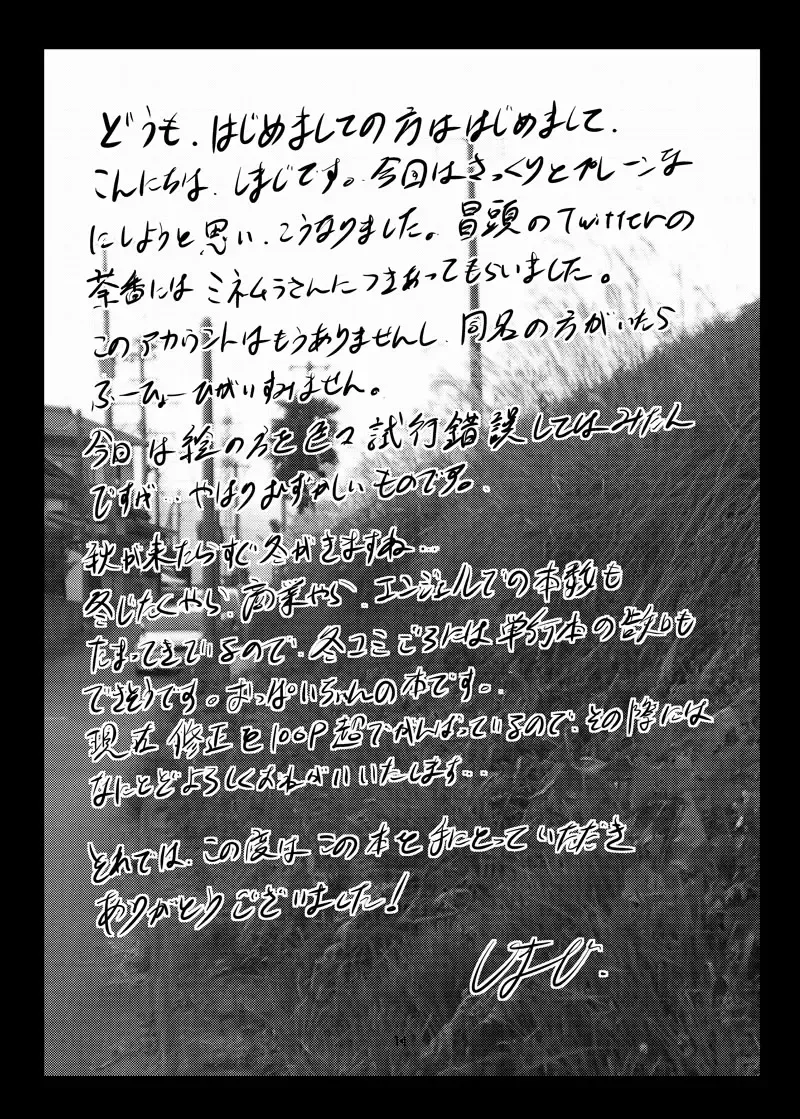 どうも、はじめましての方ははじめまして、
こんにちは、しまじです。今回はさっくりとプレーンな
にしようと思い、こうなりました。冒頭のTwitterの
茶番には ミネムラさんにつきあってもらいました。
このアカウントはもうありませんし、同名の方がいたら
ふーひょーひがいすみません。
今回は絵の方を色々試行錯誤してはみたん
ですが‥やはりむずかしいものです。
秋が来たらすぐ冬がきますね‥
冬じたくやら、商業やら、エンジェルでの本数も
たまってきているので、冬コミごろには単行本の話しも
できそうです。おっぱいちゃんの本です。
現在 修正を100P超でがんばっているので、その際には
なにとどよろしくおねがいいたします‥
それでは、この度はこの本を手にとっていただき
ありがとうございました!
14